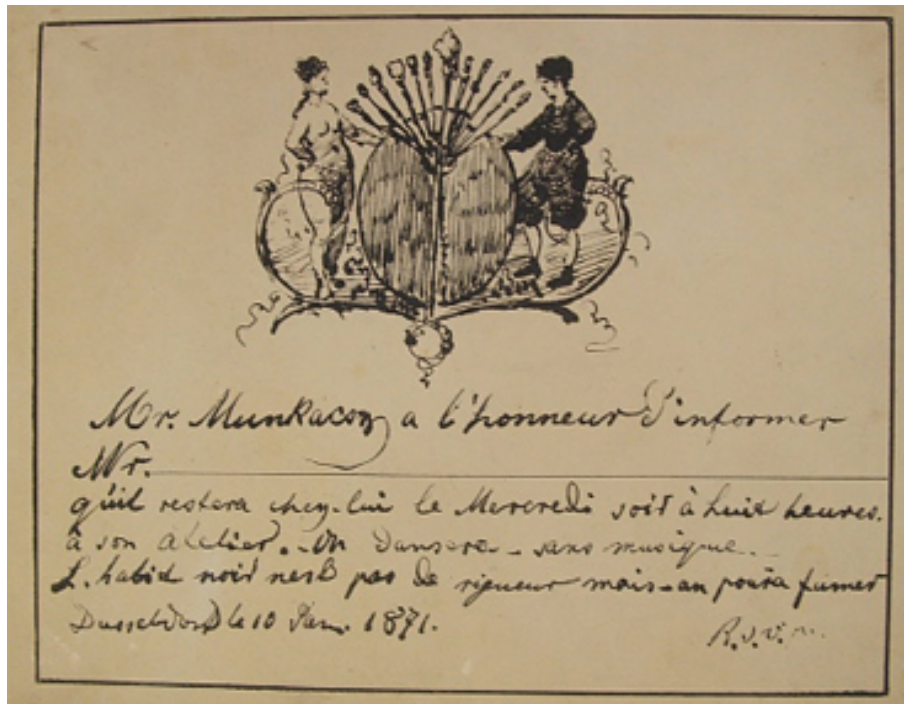 Mr. Munkacsy a l'honneur d'informer
Mr.
qu'il restera chez-lui le Mercredi soir à huit heures.
à son atelier. - On dansera - sans musique.
L. habit noir n'est pas de rigueur mais - on poura fumer
Dusseldorf le 10 Jan. 1871.
R.s.v.